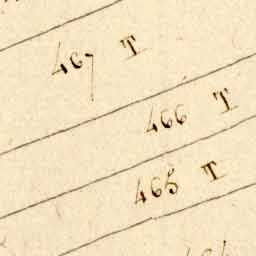 467 T
466 T
465 T